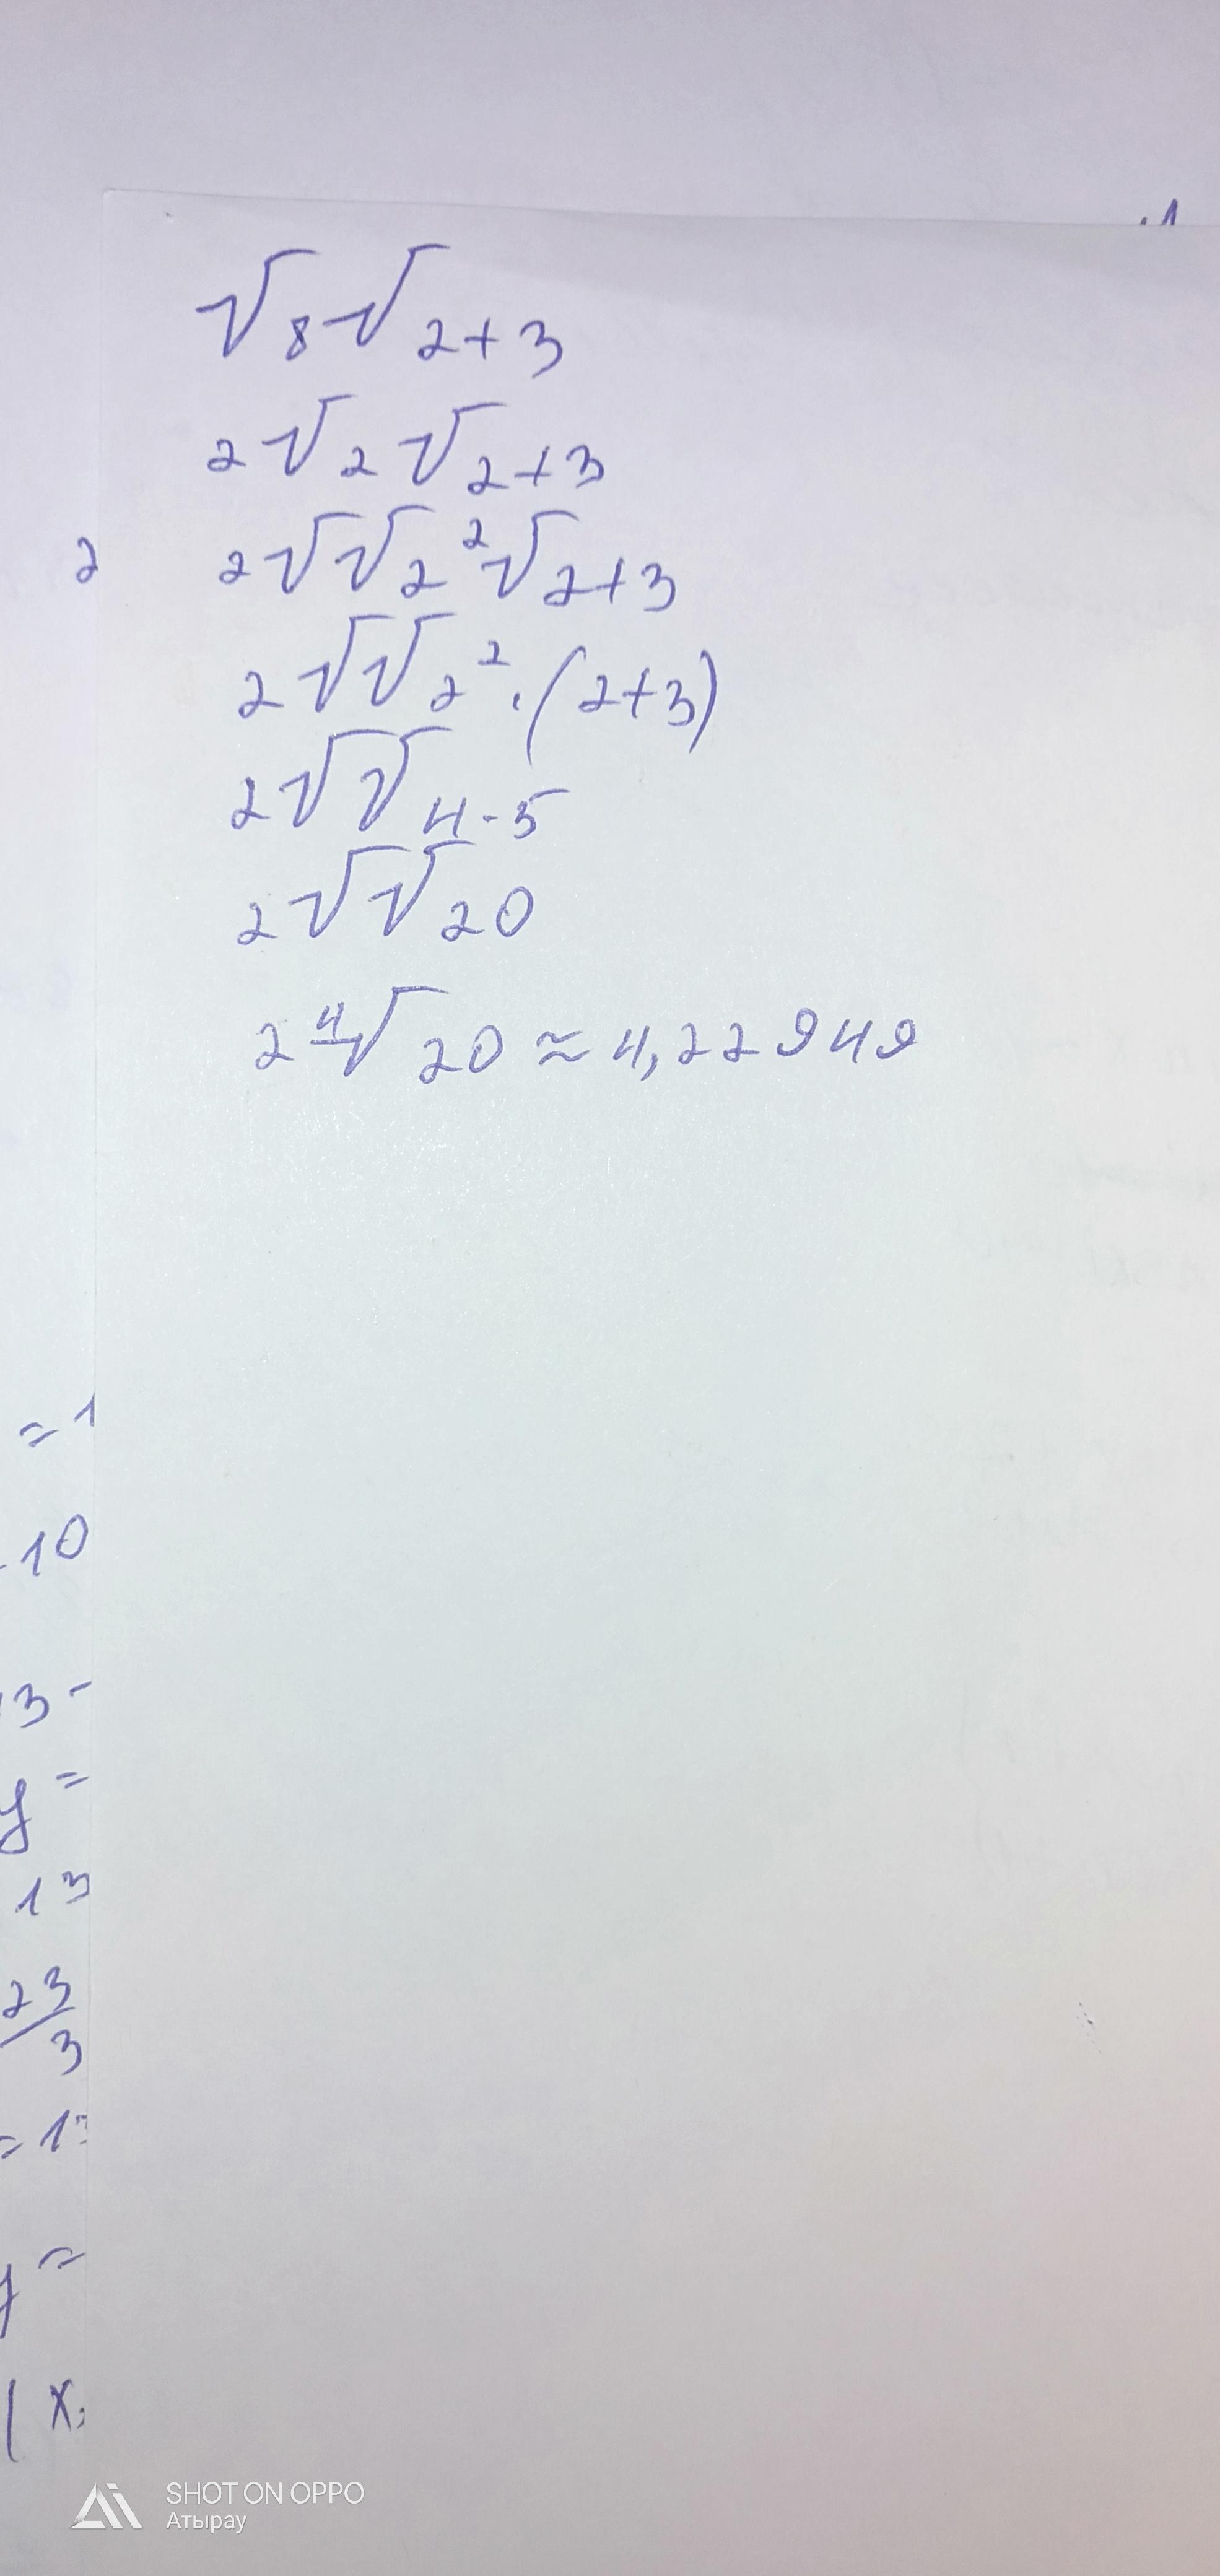 1
√8√2+3
2√2√2+3
2 2√√2²√2+3
2√√2²·(2+3)
2√√4·5
2√√20
2⁴√20≈4,22949
=1
10
3-
y=
13
23/3
=1
y=
(x;
SHOT ON OPPO
Атырау